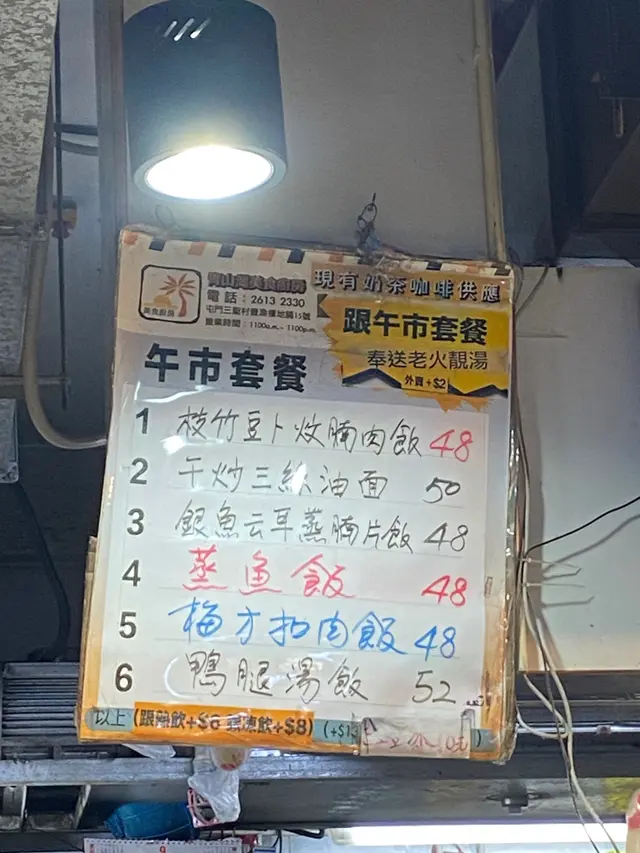 青山灣美食廚房
現有奶茶咖啡供應
美食廚房
電話：2613 2330
屯門三聖村豐漁樓地鋪15號
營業時間：1100a.m.- 1100p.m.
跟午市套餐
奉送老火靚湯
外賣+$2
午市套餐
1 枝竹豆卜炆腩肉飯 48
2 干炒三絲油面 50
3 銀魚云耳蒸腩片飯 48
4 蒸魚飯 48
5 梅才扣肉飯 48
6 鴨腿湯飯 52
以上 (跟熱飲+$6 凍飲+$8) (+$13